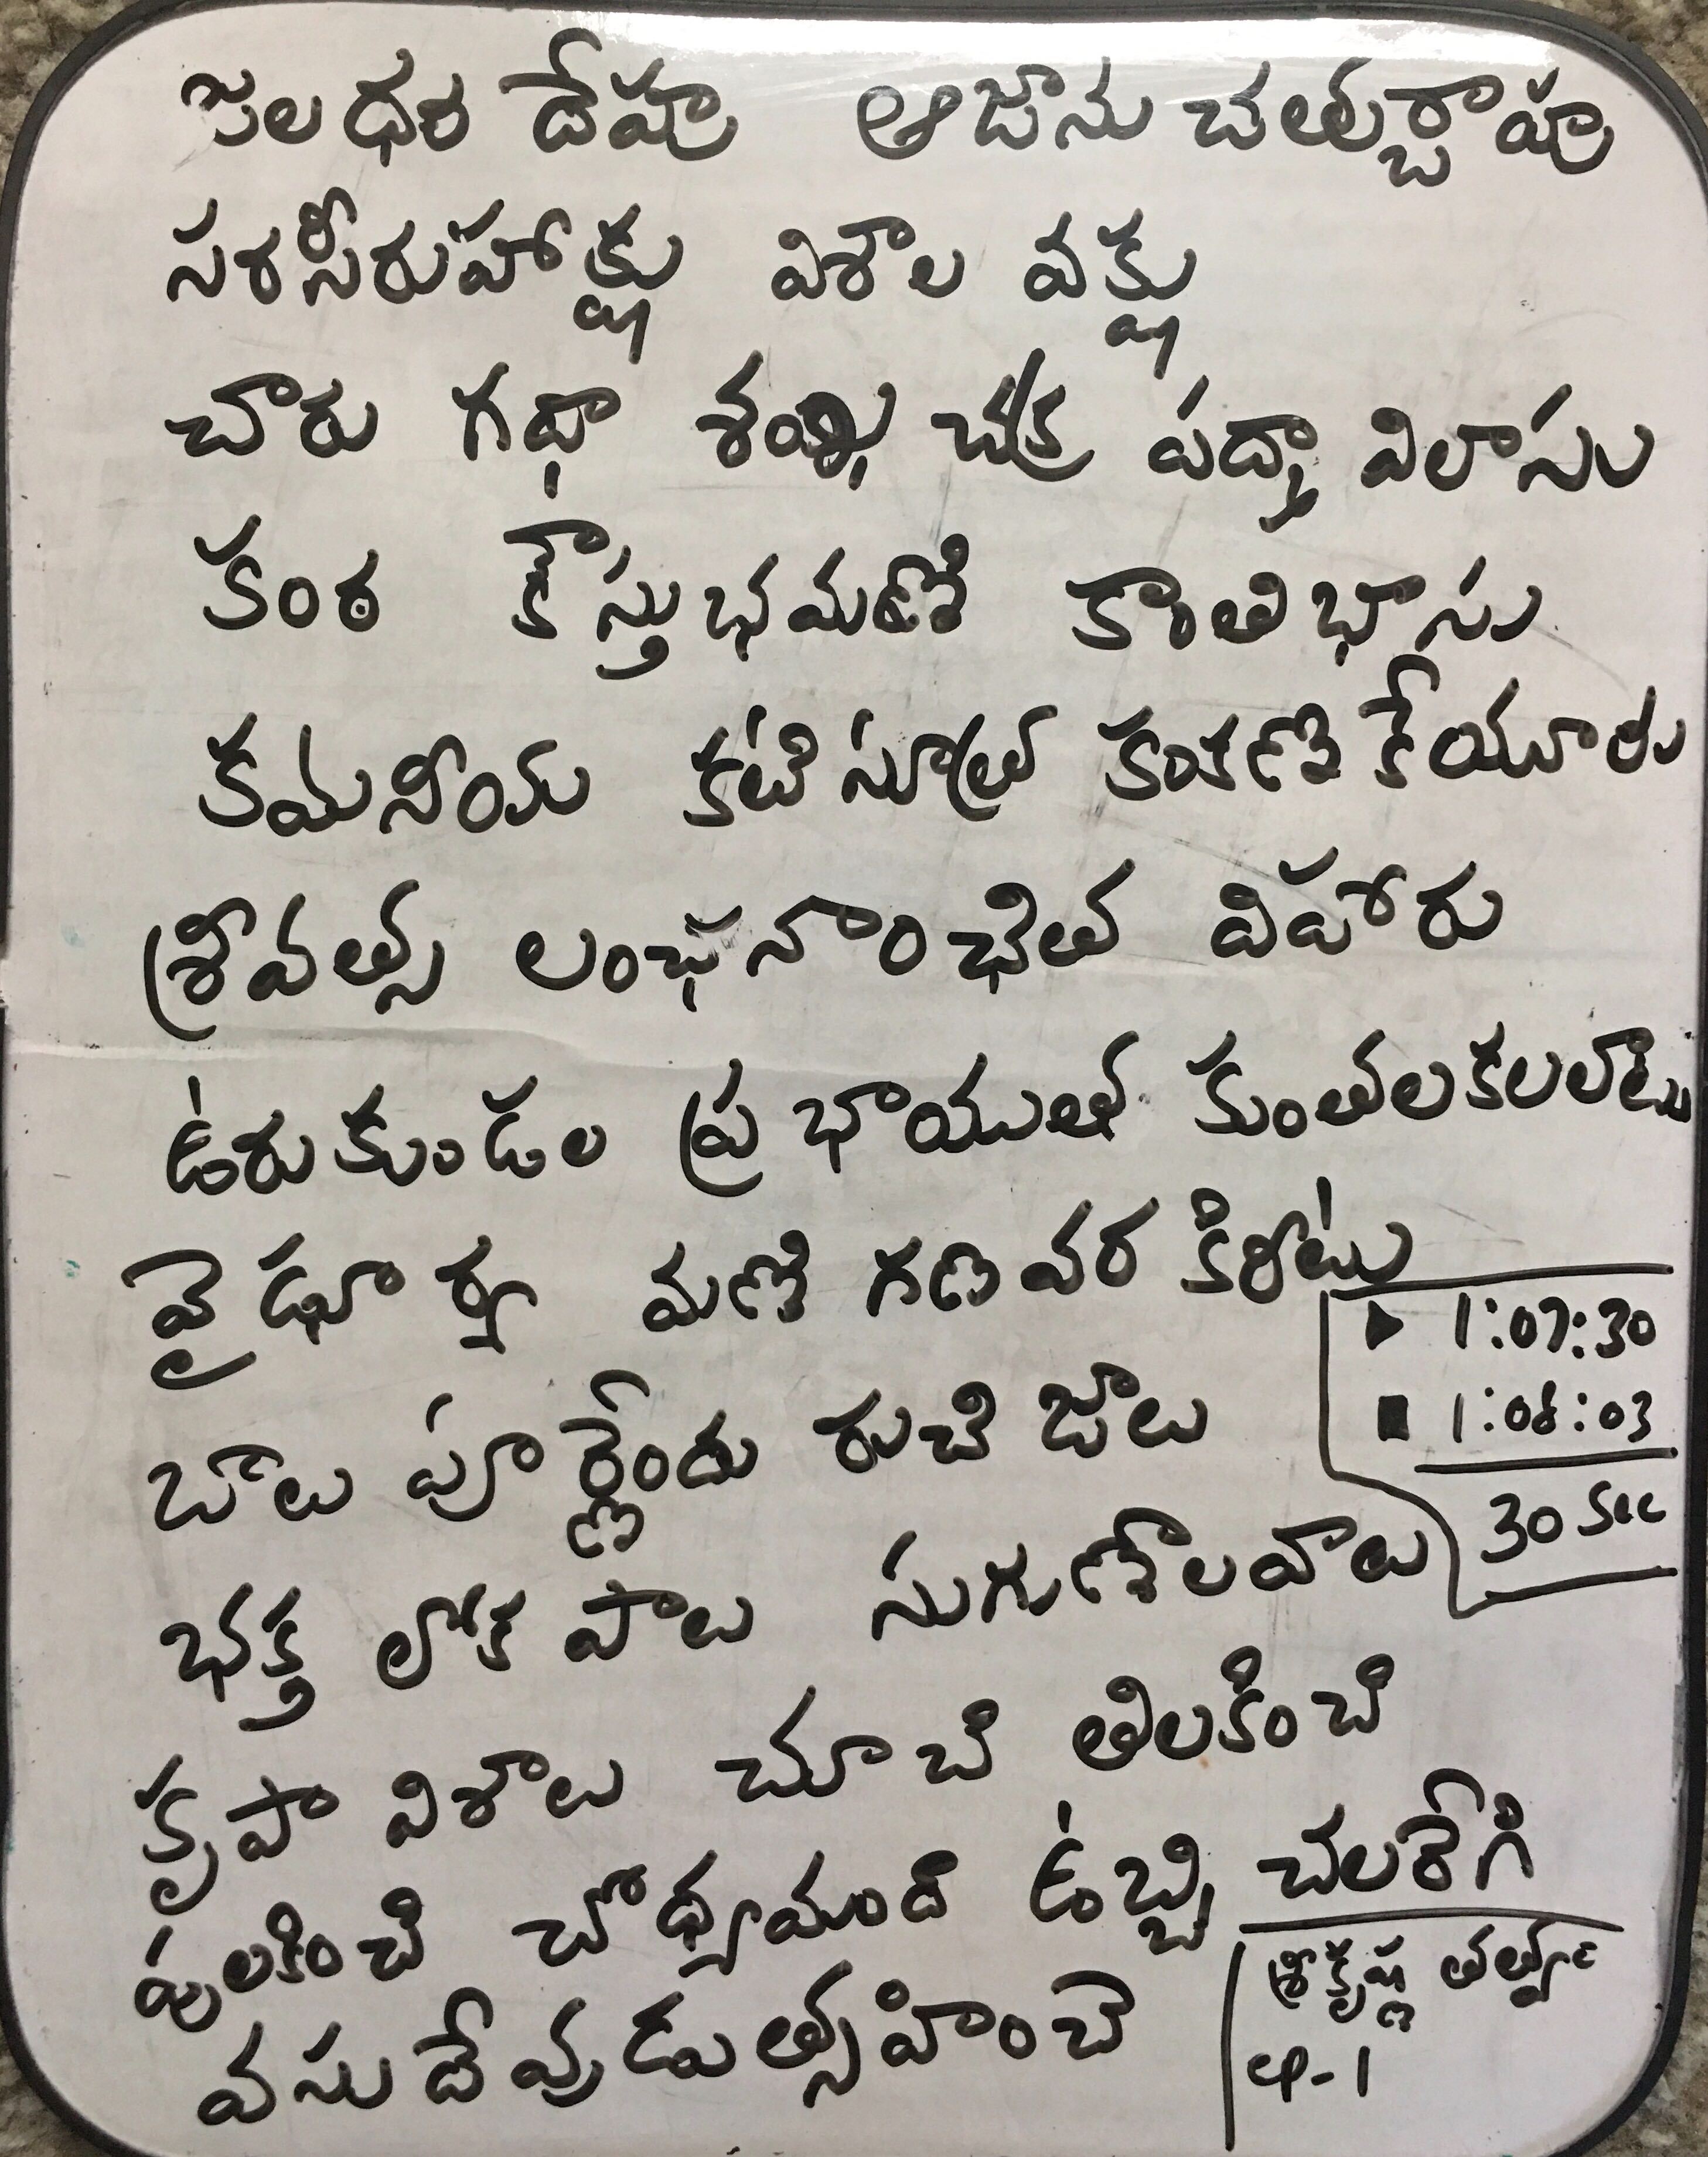 జలధర దేహు ఆజాను చతుర్బాహు
సరసీరుహాక్షు విశాల వక్షు
చారు గదా శంఖ చక్ర పద్మ విలాసు
కంఠ కౌస్తుభమణి కాంతిభాసు
కమనీయ కటి సూత్ర కంకణ కేయూరు
శ్రీవత్స లంఛనాంఛిత విహారు
ఉరుకుండల ప్రభాయుత కుంతలకలలాటు
వైడూర్య మణి గణ వర కిరీటు
▶ 1:07:30
■ 1:08:03
30 Sec
బాలు పూర్ణేందు రుచి జాలు
భక్త లోక పాలు సుగుణాలవాలు
కృపా విశాలు చూచి తిలకించి
పులకించి చోద్యమంది ఉబ్బి చలరేగి
వసుదేవుడుత్సహించె
శ్రీకృష్ణ తత్వం
ఛా-1